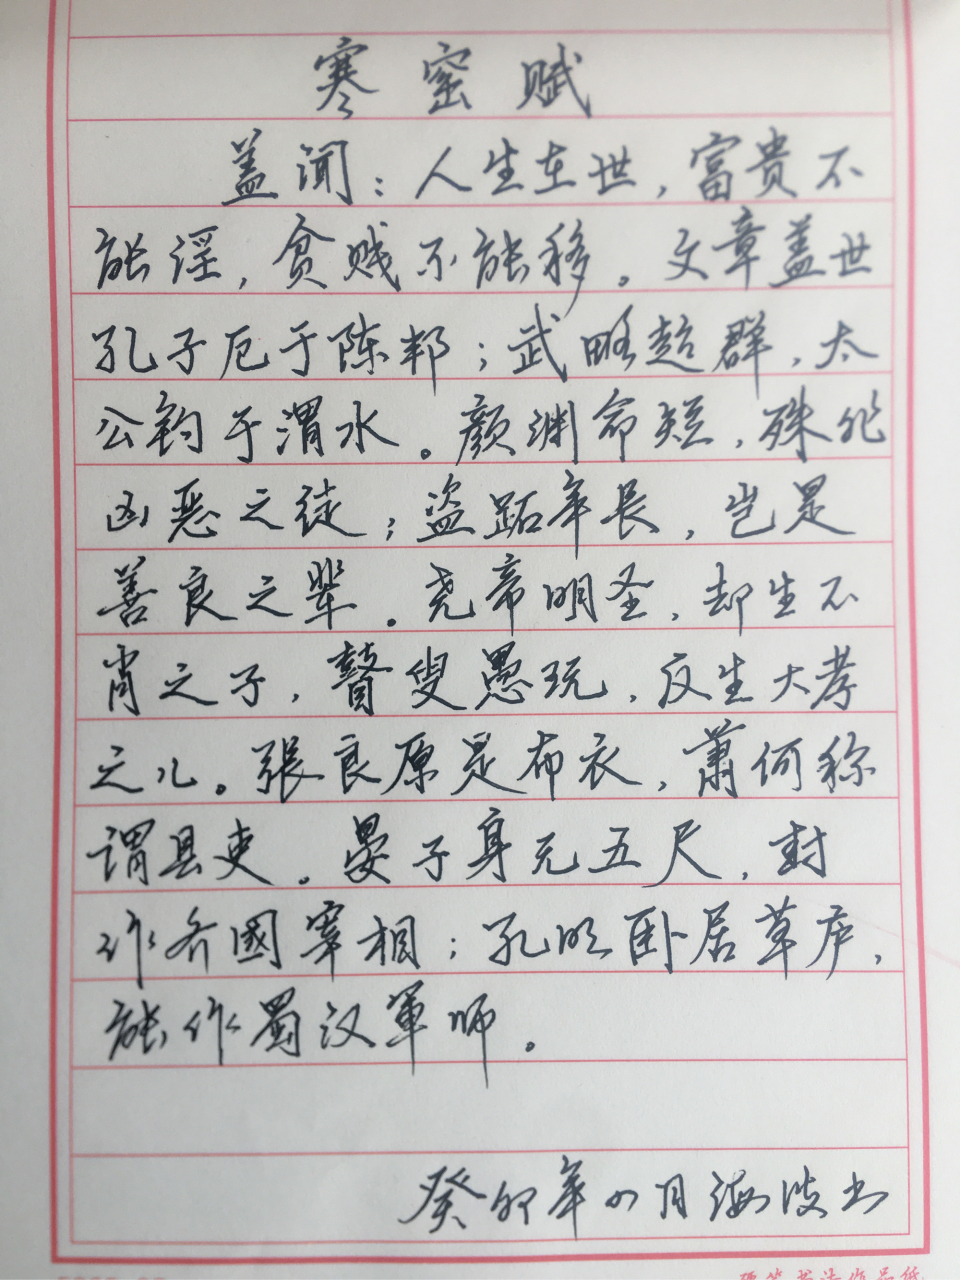 寒窑赋
盖闻：人生在世，富贵不
能淫，贫贱不能移。文章盖世
孔子厄于陈邦；武略超群，太
公钓于渭水。颜渊命短，殊非
凶恶之徒；盗跖年長，岂是
善良之辈。尧帝明圣，却生不
肖之子，瞽叟愚玩，反生大孝
之儿。張良原是布衣，萧何称
谓县吏。晏子身无五尺，封
作齐國宰相；孔明卧居草庐，
能作蜀汉軍师。
癸卯年 月海波书
硬笔书法作品纸